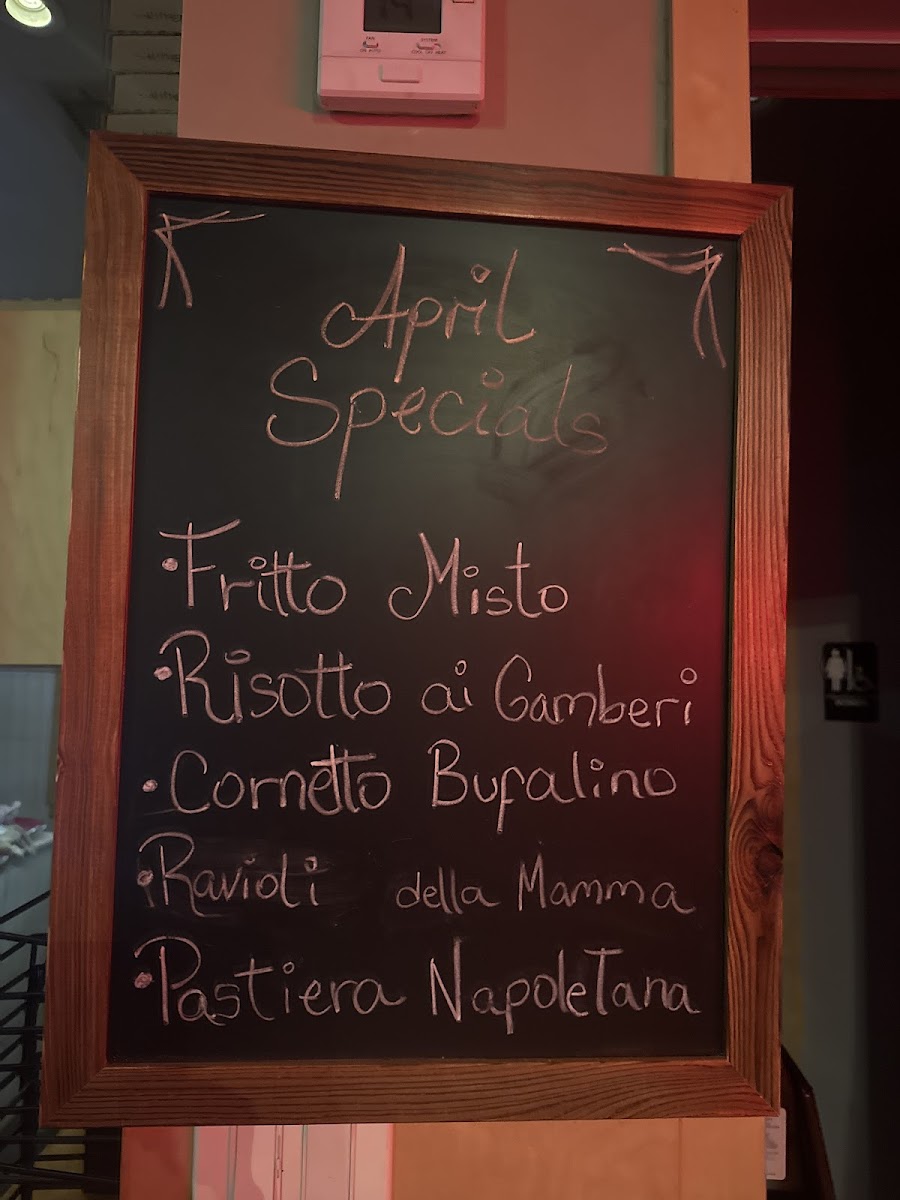 FAN
SYSTEM
COOL OFF HEAT
April
Specials
•Fritto Misto
•Risotto ai Gamberi
•Cornetto Bufalino
•Ravioli della Mamma
•Pastiera Napoletana